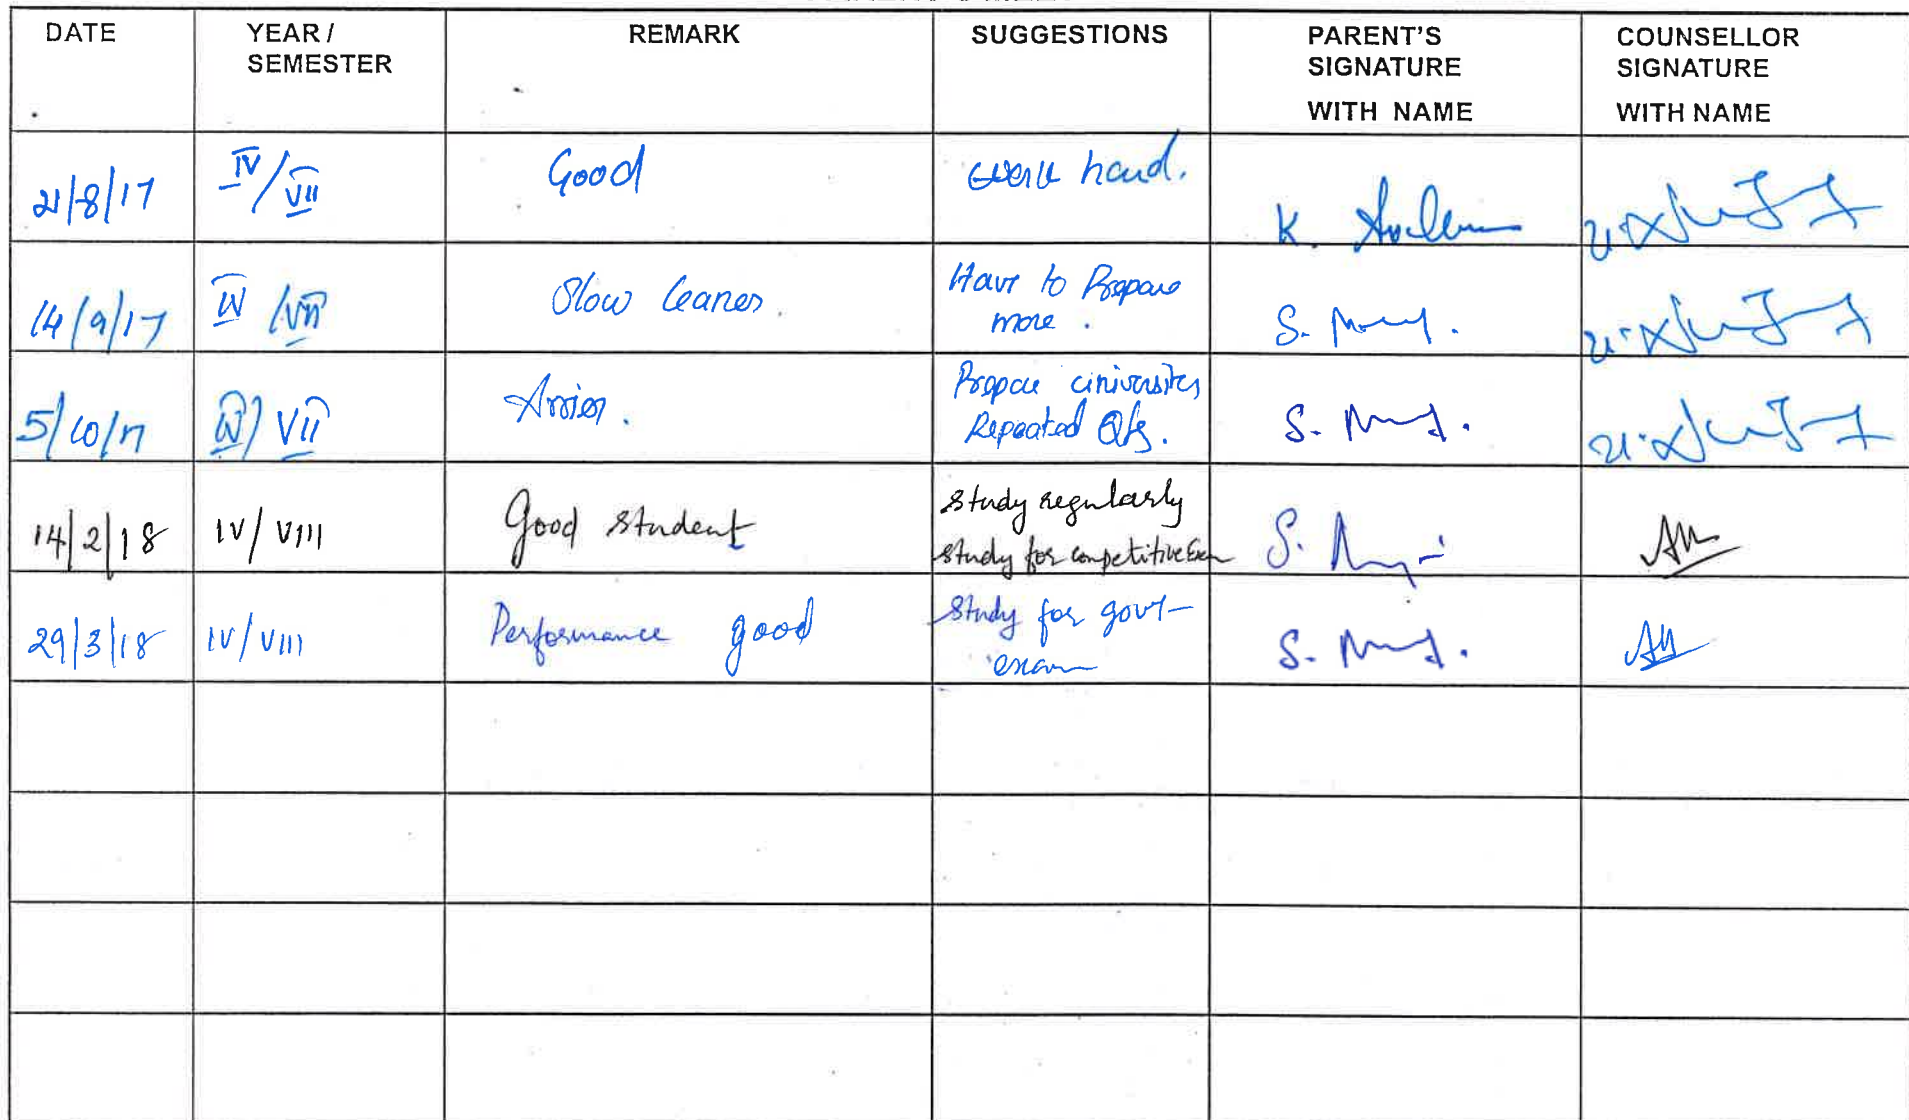 DATE YEAR / SEMESTER REMARK SUGGESTIONS PARENT'S SIGNATURE WITH NAME COUNSELLOR SIGNATURE WITH NAME
21/8/17 IV/VII Good work hard. K.
14/9/17 IV/VII Slow leaner. Have to Prepare
more.
S.
5/10/17 IV/VII Arrier. Prepare
Repeated Qts.
S.
14/2/18 IV/VIII Good student study regularly
study for competitive Exam
S.
29/3/18 IV/VIII Performance good Study for govt
exam
S.